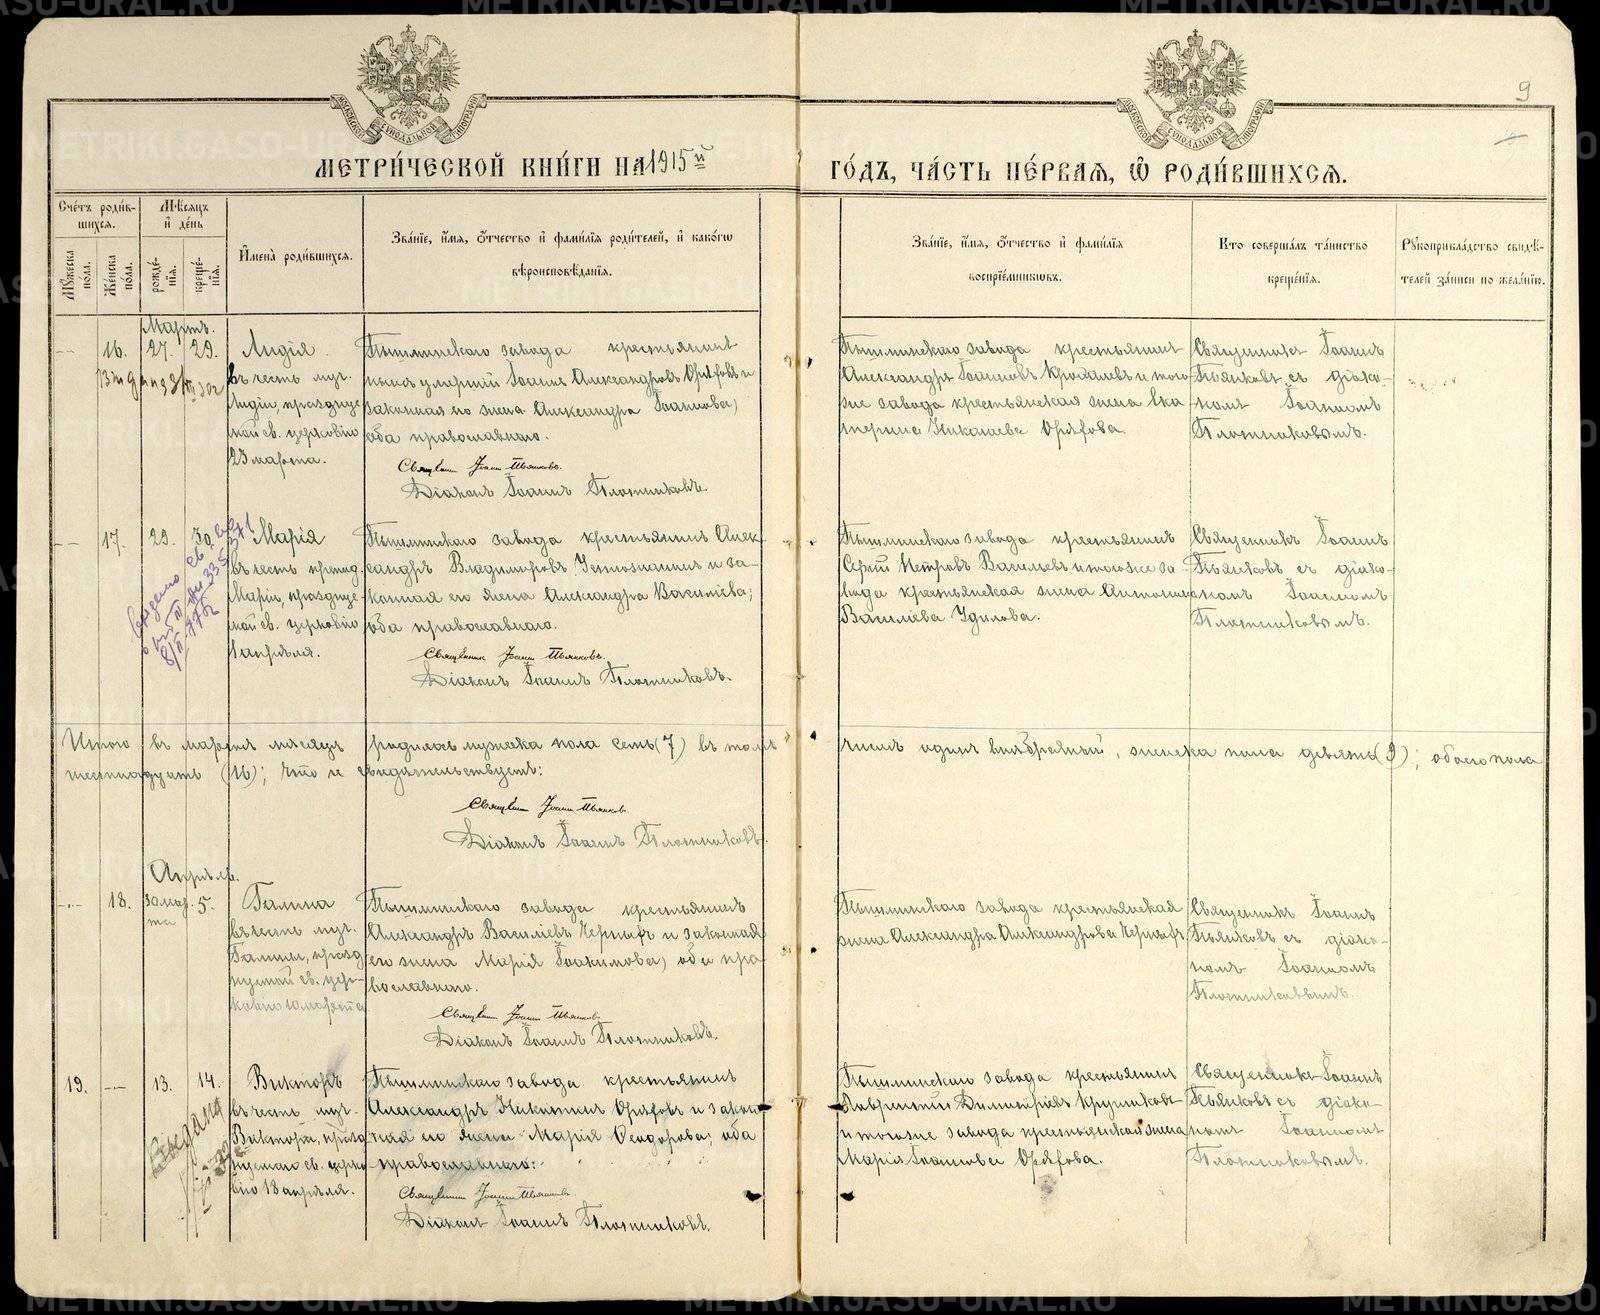 МЕТРИ́ЧЕСКОЙ КНИ́ГИ НА 1915 й
ГО́ДЪ, ЧА́СТЬ ПЕ́РВАѦ, Ѡ РОДИ́ВШИХСѦ.
9
Сче́тъ роди́в-
шихся.
Мѣ́сяцъ
и де́нь
Му́жеска
по́ла.
Же́нска
по́ла.
рожде́-
нїя.
креще́-
нїя.
И҆мена̀ роди́вшихся.
Зва́нїе, и҆́мя, о҆́тчество и҆ фами́лїя роди́телей, и҆ како́гѡ
вѣроисповѣ́данїя.
Зва́нїе, и҆́мя, о҆́тчество и҆ фами́лїя
воспрїе́мниковъ.
Кто̀ соверша́лъ та́инство
креще́нїя.
Рꙋкоприкла́дство свидѣ́-
телей за́писи по жела́нїю.
Мартъ.
16. 27. 29.
Лидія
въ честь муч.
Лидіи, праздуе
мой св. церковію
23 марта.
Пышминскаго завода крестьянинъ
Іоаннъ Александровъ и
законная его жена Александра Іоаннова,
оба православнаго.
Священникъ Іоаннъ Пьянковъ.
Діаконъ Іоаннъ Плотниковъ.
Пышминскаго завода крестьянинъ
Александръ Іоанновъ и того
же завода крестьянская жена Ека
терина
Священникъ Іоаннъ
Пьянковъ съ діако-
номъ Іоанномъ
Плотниковымъ.
17. 29. 30.
Марія
въ честь препод.
Маріи, праздуе
мой св. церковію
1 апрѣля.
Пышминскаго завода крестьянинъ Алек-
сандръ Владимировъ и за-
конная его жена Александра Васильева;
оба православнаго.
Священникъ Іоаннъ Пьянковъ.
Діаконъ Іоаннъ Плотниковъ.
Пышминскаго завода крестьянинъ
Сергій Петровъ Васильевъ и того же за-
вода крестьянская жена Антонина
Васильева Удилова.
Священникъ Іоаннъ
Пьянковъ съ діако-
номъ Іоанномъ
Плотниковымъ.
Итого въ мартѣ мѣсяцѣ родилось мужеска пола семь (7) въ томъ числѣ одинъ внѣбрачный, женска пола девять (9); обоего пола
шестнадцать (16); что и свидѣтельствуетъ:
Священникъ Іоаннъ Пьянковъ
Діаконъ Іоаннъ Плотниковъ.
Апрѣль.
18. 30 мар.
та 5.
Галина
въ честь муч.
Галины, празд
нуемой св. цер-
ковію 10 марта
Пышминскаго завода крестьянинъ
Александръ Васильевъ Черныхъ и законная
его жена Марія Іоакимова, оба пра
вославнаго.
Священникъ Іоаннъ Пьянковъ
Діаконъ Іоаннъ Плотниковъ.
Пышминскаго завода крестьянская
жена Александра Александрова Черныхъ.
Священникъ Іоаннъ
Пьянковъ съ діако-
номъ Іоанномъ
Плотниковымъ.
19. 13. 14.
Викторъ
въ честь муч.
Виктора, празд
нуемаго св. церко
вію 18 апрѣля.
Пышминскаго завода крестьянинъ
Александръ Никитинъ и закон
ная его жена Марія Ѳеодорова; оба
православнаго:
Священникъ Іоаннъ Пьянковъ
Діаконъ Іоаннъ Плотниковъ.
Пышминскаго завода крестьянинъ
Лаврентій Димитріевъ Кругликовъ
и того же завода крестьянская жена
Марія Іоаннова
Священникъ Іоаннъ
Пьянковъ съ діако-
номъ Іоанномъ
Плотниковымъ.
METRIKI.GASO-URAL.RU